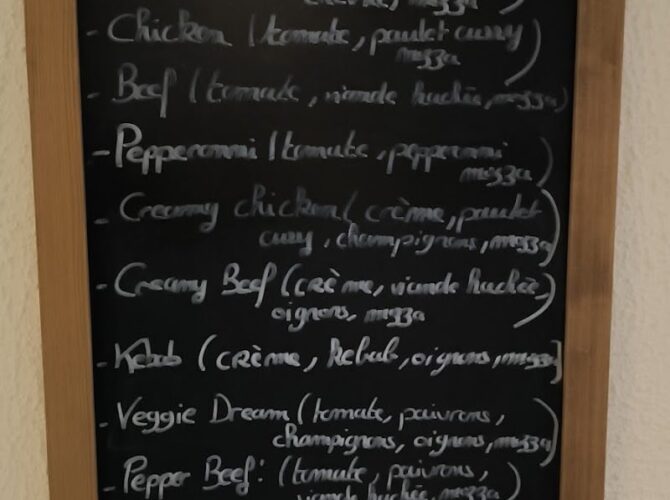 crème, mozza)
- Chicken (tomate, poulet curry
mozza)
- Beef (tomate, viande hachée, mozza)
- Pepperonni (tomate, pepperonni
mozza)
- Creamy chicken (crème, poulet
curry, champignons, mozza)
- Creamy Beef (crème, viande hachée,
oignons, mozza)
- Kebab (crème, kebab, oignons, mozza)
- Veggie Dream (tomate, poivrons,
champignons, oignons, mozza)
- Pepper Beef: (tomate, poivrons,
viande hachée, mozza)